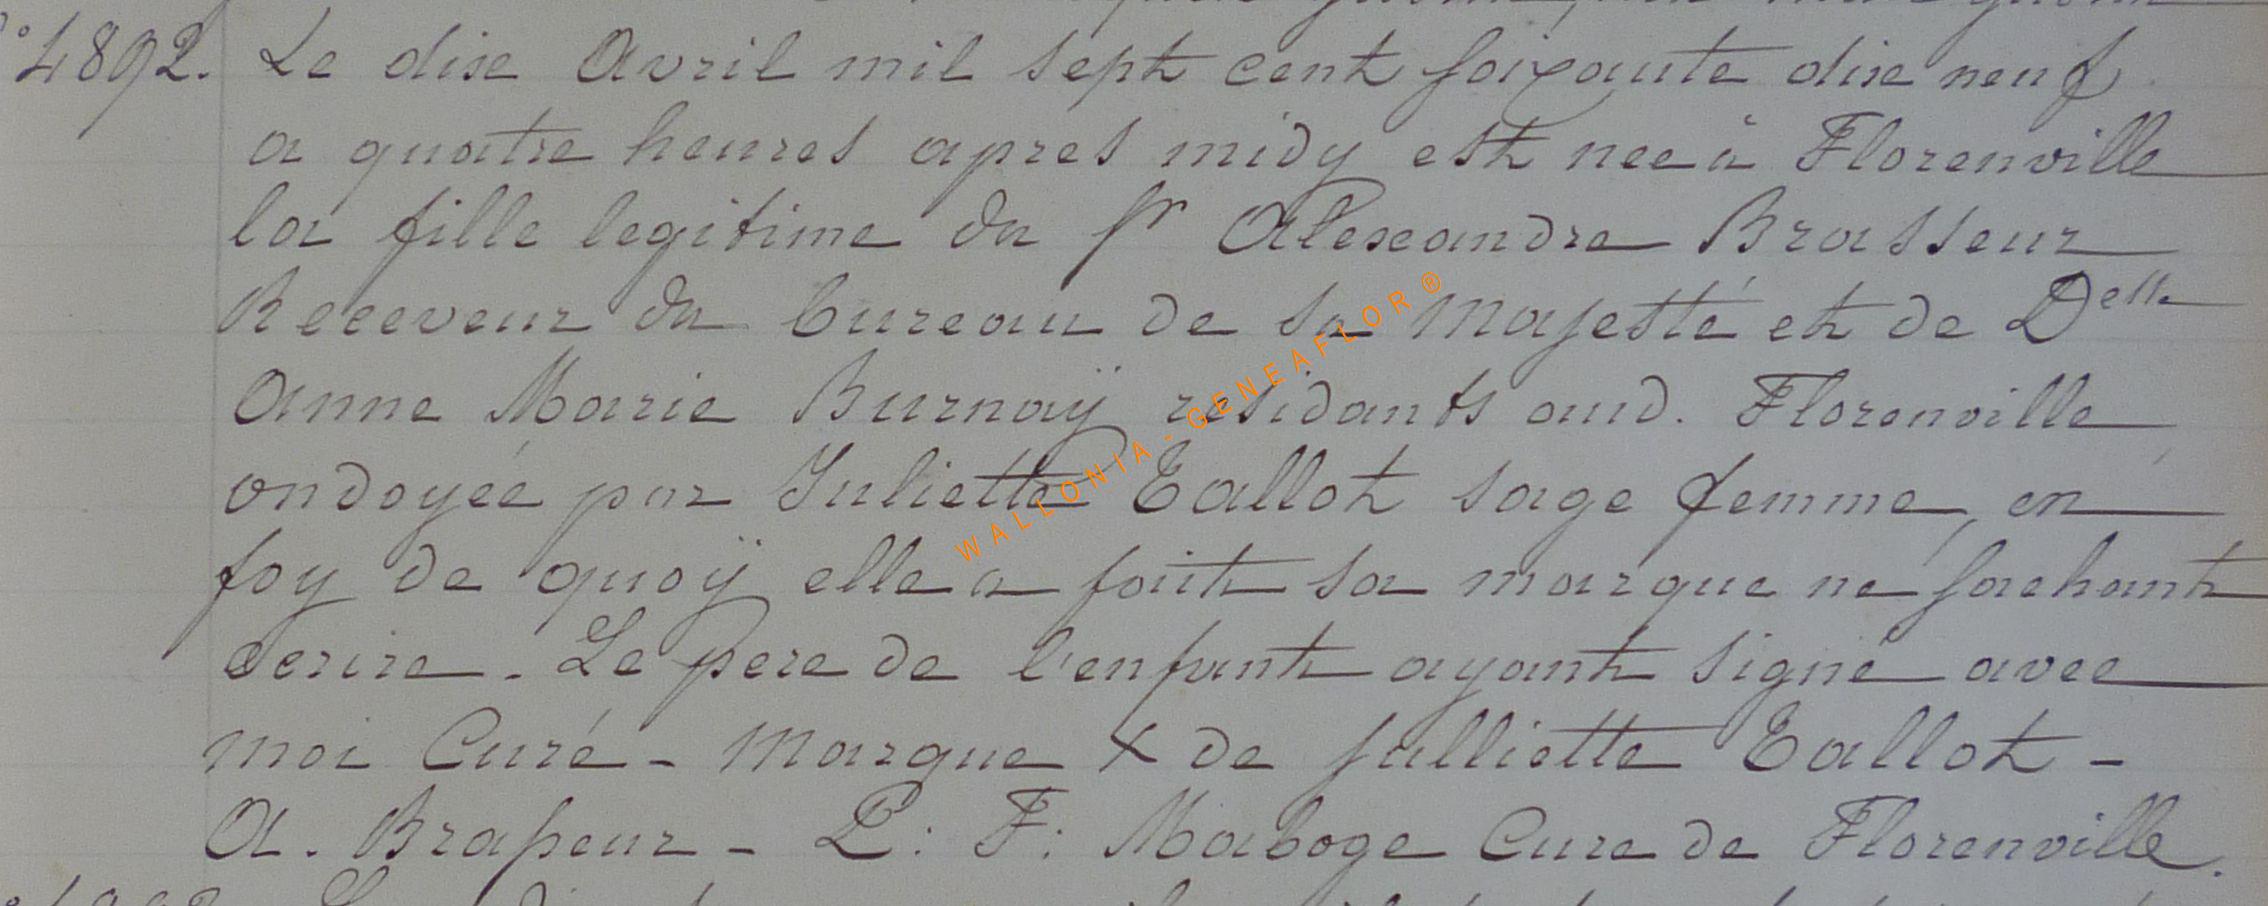 4892. Le dix Avril mil sept cent soixante dix neuf
a quatre heures apres midy est nee à Florenville
la fille legitime du Sr Alexandre Brasseur
Receveur du bureau de sa Majesté et de Delle
Anne Marie Burnaÿ residants aud. Florenville,
ondoyée par Juliette Tallot sage femme, en
foy de quoÿ elle a fait sa marque ne sachant
ecrire. Le pere de l'enfant ayant signé avec
moi Curé - Marque X de Julliette Tallot -
A. Brasseur - L: F: Maboge Cure de Florenville.
WALLONIA-GENEAFLOR®